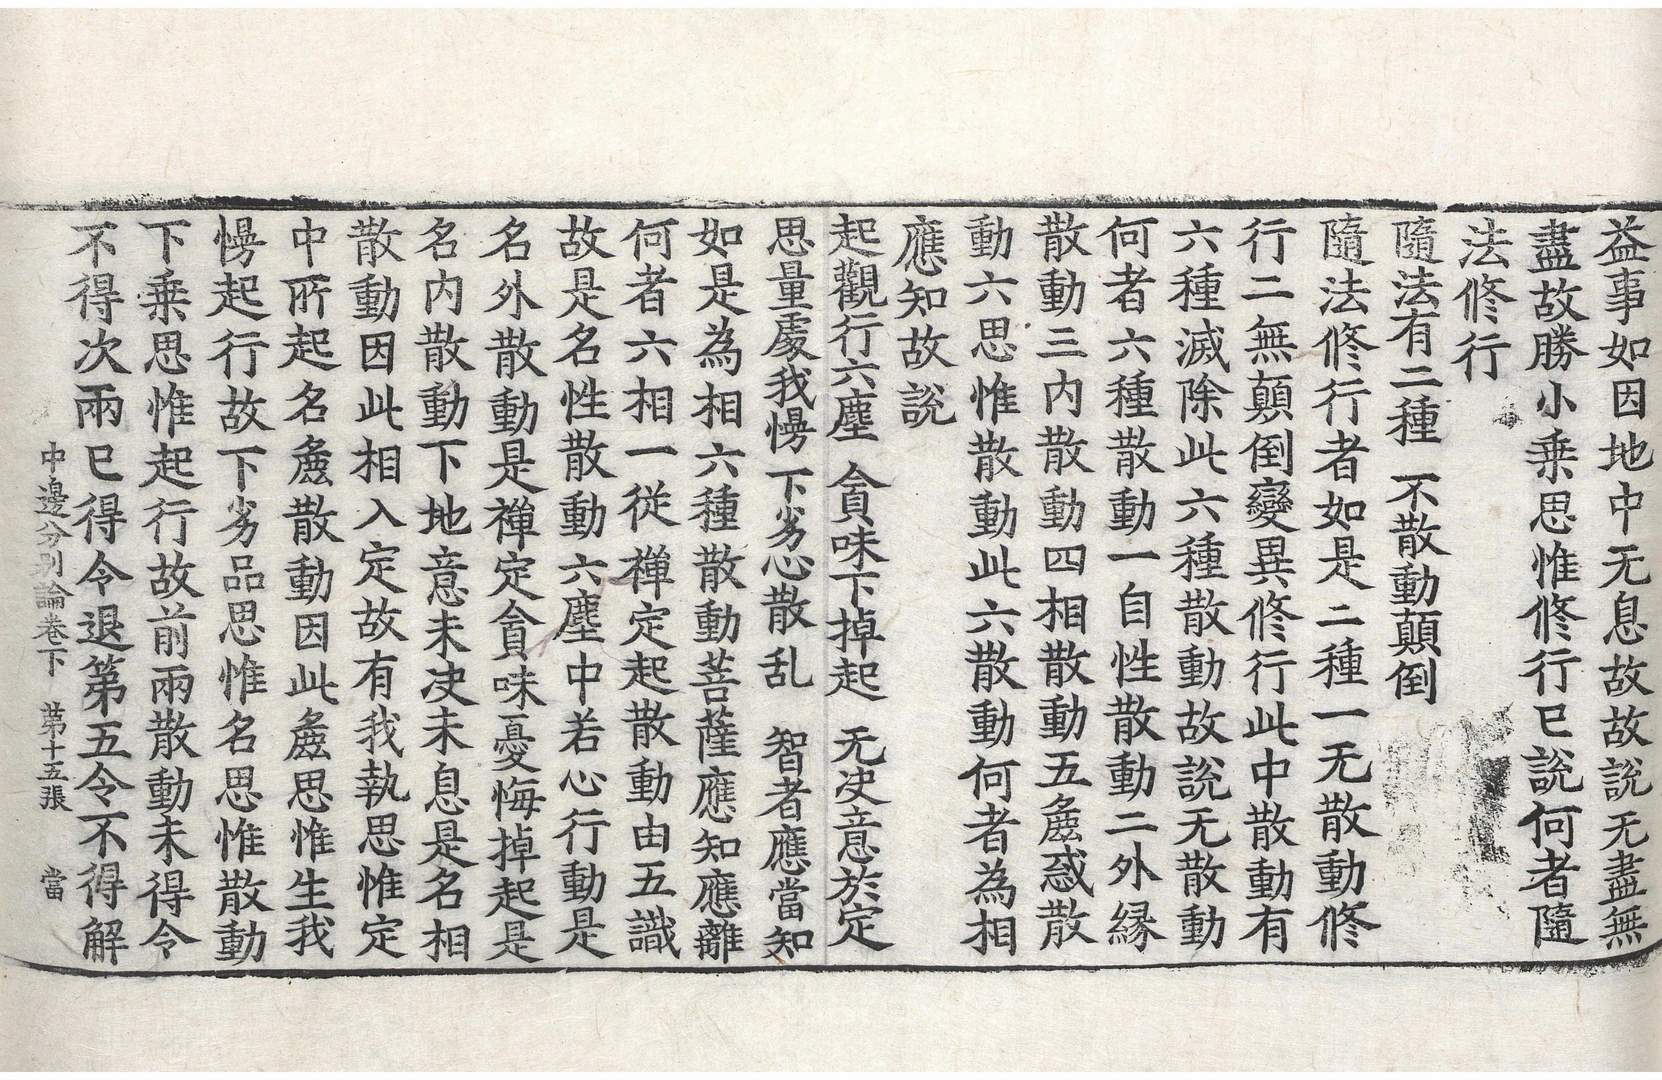 益事如因地中无息故故説无盡無
盡故勝小乗思惟修行已説何者隨
法修行
隨法有二種　不散動顛倒
隨法修行者如是二種一无散動修
行二無顛倒變異修行此中散動有
六種滅除此六種散動故説无散動
何者六種散動一自性散動二外縁
散動三内散動四相散動五麁惑散
動六思惟散動此六散動何者為相
應知故説
起觀行六塵　貪味下掉起　无决意於定
思量處我慢　下劣心散乱　智者應當知
如是為相六種散動菩薩應知應離
何者六相一従禅定起散動由五識
故是名性散動六塵中若心行動是
名外散動是禅定貪味憂悔掉起是
名内散動下地意未决未息是名相
散動因此相入定故有我執思惟定
中所起名麁散動因此麁思惟生我
慢起行故下劣品思惟名思惟散動
下乗思惟起行故前兩散動未得令
不得次兩已得令退第五令不得解
中邊分别論卷下　苐十五張　當